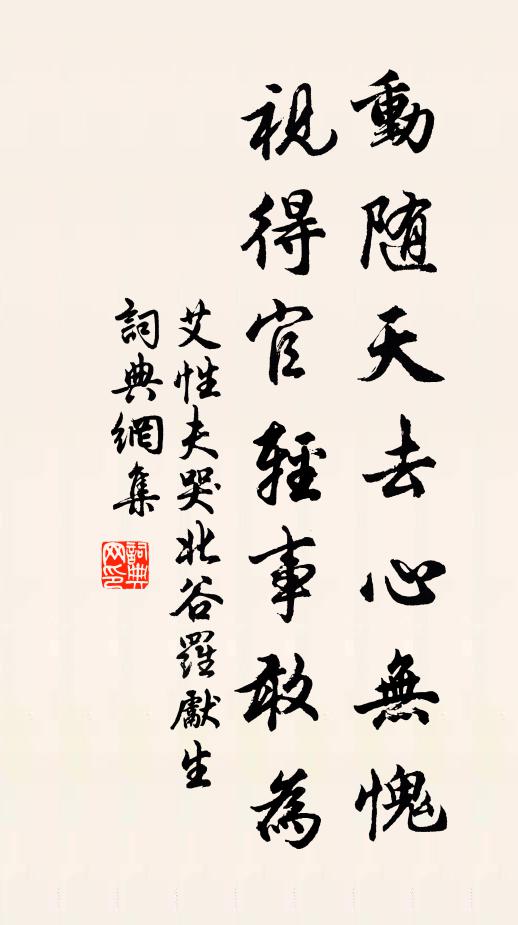 動随天去心無愧
視得官輕事敢為
艾性夫哭北谷羅獻生
詞典網集
詞典網印